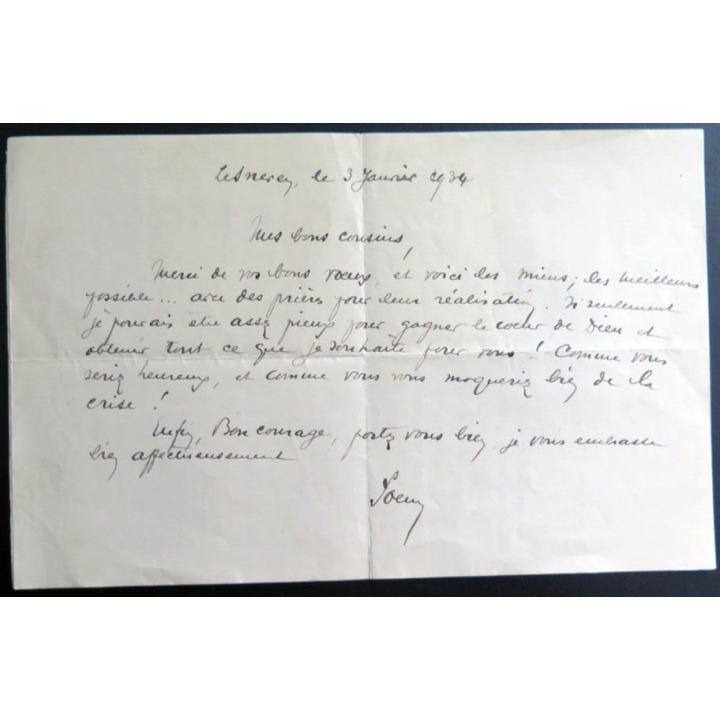 Lesneven, le 3 Janvier 1934
Mes bons cousins,
Merci de vos bons voeux, et voici les miens; les meilleurs
possible... avec des prières pour leur réalisation. Si seulement
je pouvais être assez pieux pour gagner le coeur de Dieu et
obtenir tout ce que je souhaite pour vous! Comme vous
seriez heureux, et comme vous vous moqueriez bien de la
crise!
Enfin, Bon courage, portez vous bien, je vous embrasse
bien affectueusement